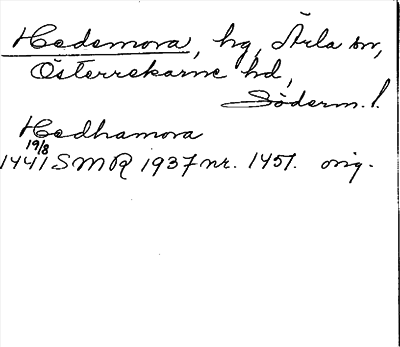 Hedemora, hg, Ärla sn,
Österrekarne hd,
Söderm. l.
Hedhamora
19/8
1441 SMR 1937 nr. 1451. orig.